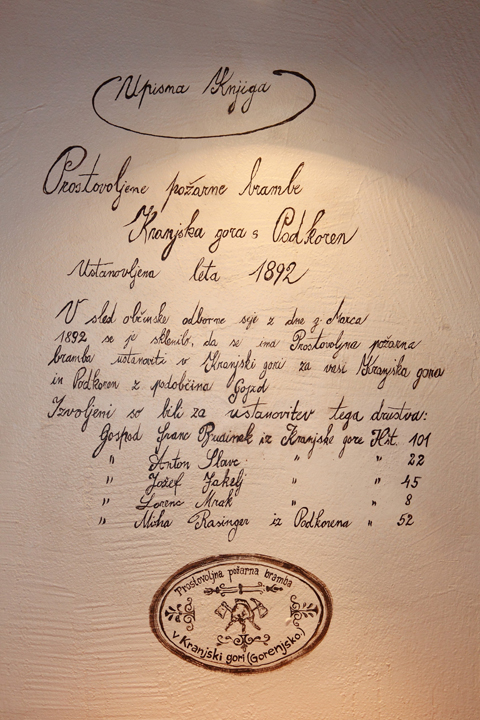 Upisna Knjiga
Prostovoljne požarne brambe
Kranjska gora s Podkoren
Ustanovljena leta 1892
V sled občinske odborne seje z dne 9. Marca
1892 se je sklenilo, da se ima Prostovoljna požarna
bramba ustanoviti v Kranjski gori za vasi Kranjska gora
in Podkoren z podobčina Gojzd
Izvoljeni so bili za ustanovitev tega društva:
Gospod Franc Budinek iz Kranjske gore Hšt. 101
" Anton Slavc " " 22
" Jožef Jakelj " " 45
" Lorenc Mrak " " 8
" Miha Rasinger iz Podkorena " 52
Prostovoljna požarna bramba
v Kranjski gori (Gorenjsko)